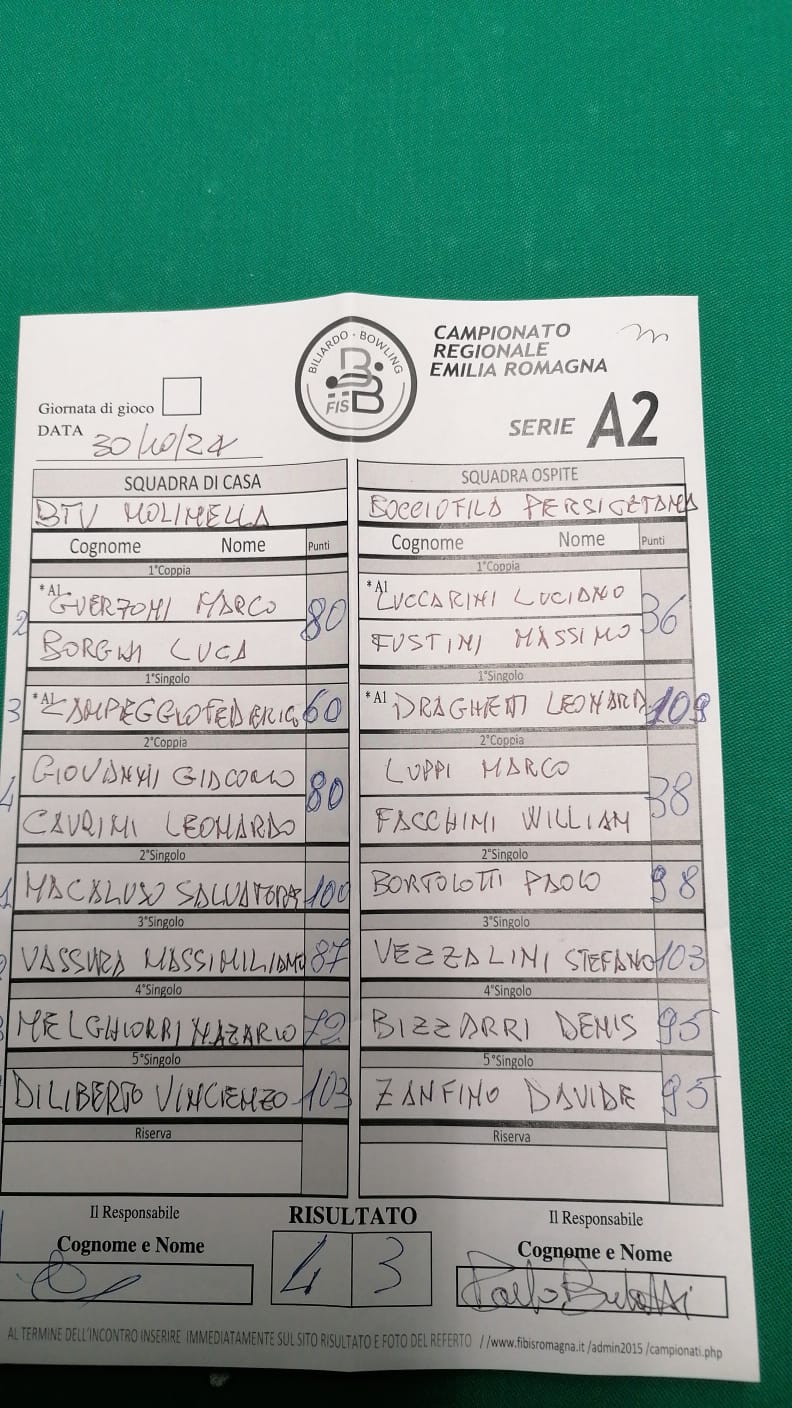 BILIARDO · BOWLING
FISBB
CAMPIONATO
REGIONALE
EMILIA ROMAGNA
SERIE A2
Giornata di gioco
DATA 30/10/24
SQUADRA DI CASA SQUADRA OSPITE
BTV MOLINELLA BOCCIOFILA PERSICETANA
Cognome Nome Punti Cognome Nome Punti
1°Coppia 1°Coppia
2 *A1 GUERZONI MARCO 80 *A1 LUCCARINI LUCIANO 36
BORGHI LUCA FUSTINI MASSIMO
1°Singolo 1°Singolo
3 *A1 CAMPEGGIO FEDERICO 60 *A1 DRAGHETTI LEONARD 109
2°Coppia 2°Coppia
4 GIOVANNI GIACOMO 80 LUPPI MARCO 38
CAVRINI LEONARDO FACCHINI WILLIAM
2°Singolo 2°Singolo
1 MACALUSO SALVATORE 100 BORTOLOTTI PAOLO 98
3°Singolo 3°Singolo
VASSURA MASSIMILIANO 87 VEZZALINI STEFANO 103
4°Singolo 4°Singolo
MELCHIORRI NAZARIO 72 BIZZARRI DENIS 95
5°Singolo 5°Singolo
DILIBERTO VINCENZO 103 ZANFINO DAVIDE 95
Riserva Riserva
Il Responsabile RISULTATO Il Responsabile
Cognome e Nome 4 3 Cognome e Nome
AL TERMINE DELL'INCONTRO INSERIRE IMMEDIATAMENTE SUL SITO RISULTATO E FOTO DEL REFERTO //www.fibisromagna.it /admin2015 /campionati.php